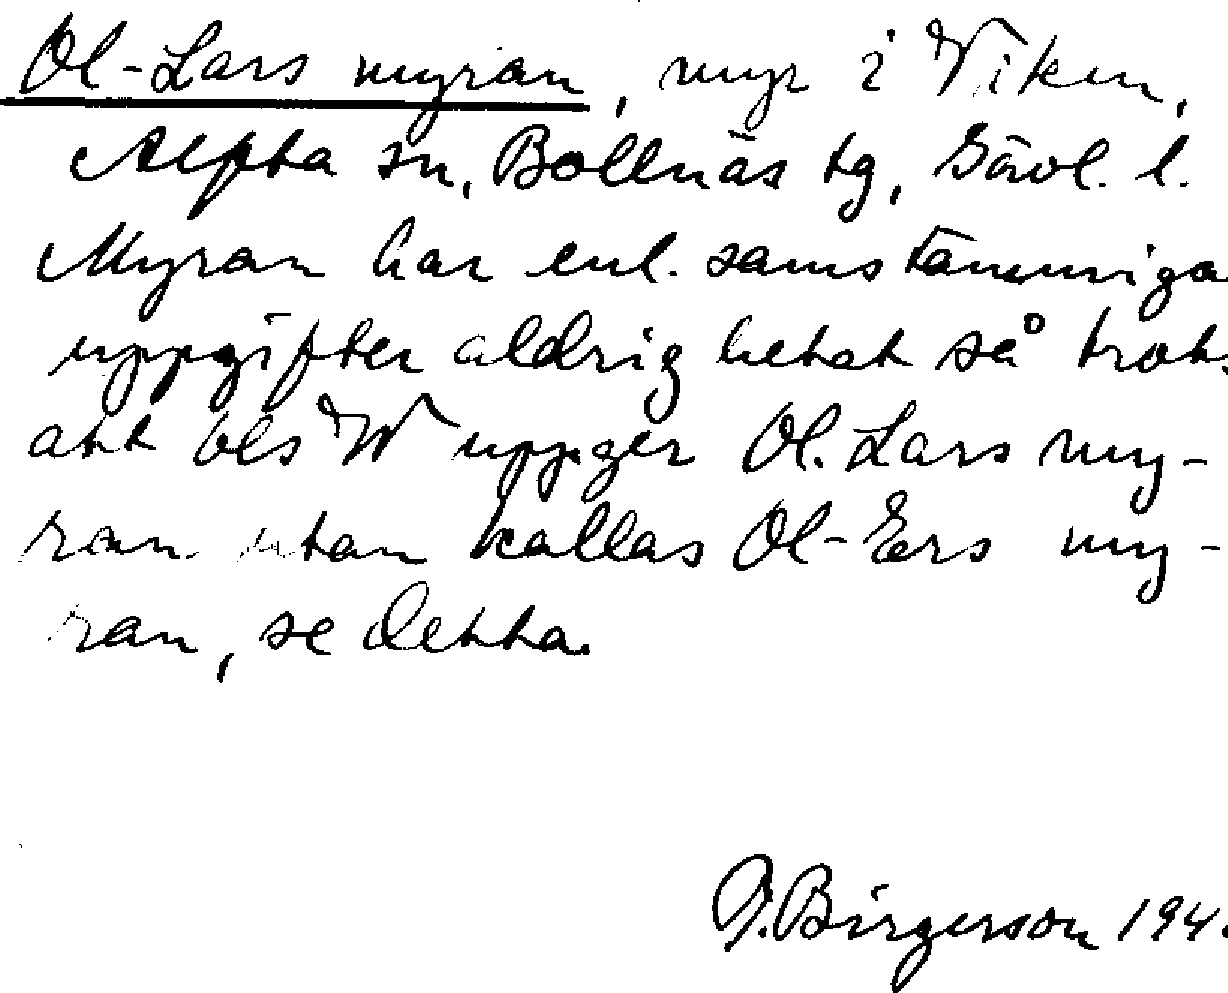 Ol-Lars myran, myr i Viken,
Alfta sn, Bollnäs tg, Gävl. l.
Myran har enl. samstämmiga
uppgifter aldrig hetat så trots
att bls W uppger Ol. Lars my-
ran utan kallas Ol-Ers my-
ran, se detta.
G. Birgerson 194